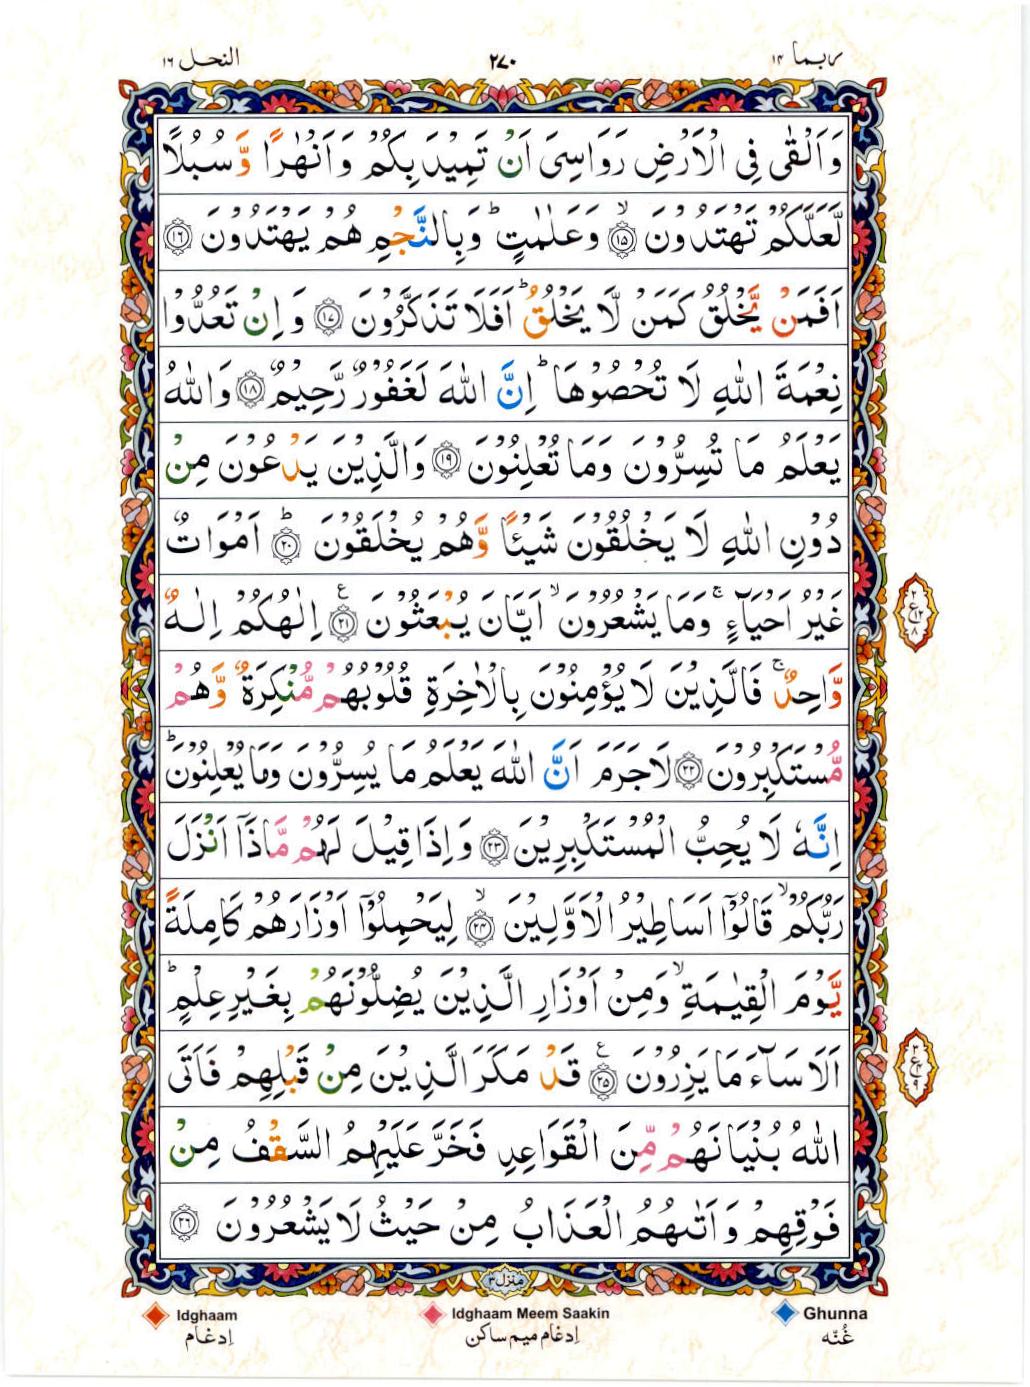 ربما ١٤
٢٧٠
النحل ١٦
وَاَلْقٰى فِى الْاَرْضِ رَوَاسِىَ اَنْ تَمِيْدَ بِكُمْ وَاَنْهٰرًا وَّسُبُلًا
لَّعَلَّكُمْ تَهْتَدُوْنَ ۙ‏﴿۱۵﴾ وَعَلٰمٰتٍ ؕ وَبِالنَّجْمِ هُمْ يَهْتَدُوْنَ ﴿۱۶﴾
اَفَمَنْ يَّخْلُقُ كَمَنْ لَّا يَخْلُقُ ؕ اَفَلَا تَذَكَّرُوْنَ ﴿۱۷﴾ وَاِنْ تَعُدُّوْا
نِعْمَةَ اللّٰهِ لَا تُحْصُوْهَا ؕ اِنَّ اللّٰهَ لَغَفُوْرٌ رَّحِيْمٌ ﴿۱۸﴾ وَاللّٰهُ
يَعْلَمُ مَا تُسِرُّوْنَ وَمَا تُعْلِنُوْنَ ﴿۱۹﴾ وَالَّذِيْنَ يَدْعُوْنَ مِنْ
دُوْنِ اللّٰهِ لَا يَخْلُقُوْنَ شَيْـًٔا وَّهُمْ يُخْلَقُوْنَ ؕ ﴿۲۰﴾ اَمْوَاتٌ
غَيْرُ اَحْيَآءٍ ۚ وَمَا يَشْعُرُوْنَ ۙ اَيَّانَ يُبْعَثُوْنَ ﴿۲۱﴾ ع اِلٰهُكُمْ اِلٰهٌ
وَّاحِدٌ ۚ فَالَّذِيْنَ لَا يُؤْمِنُوْنَ بِالْاٰخِرَةِ قُلُوْبُهُمْ مُّنْكِرَةٌ وَّهُمْ
مُّسْتَكْبِرُوْنَ ﴿۲۲﴾ لَا جَرَمَ اَنَّ اللّٰهَ يَعْلَمُ مَا يُسِرُّوْنَ وَمَا يُعْلِنُوْنَ ؕ
اِنَّهٗ لَا يُحِبُّ الْمُسْتَكْبِرِيْنَ ﴿۲۳﴾ وَاِذَا قِيْلَ لَهُمْ مَّاذَاۤ اَنْزَلَ
رَبُّكُمْ ۙ قَالُوْۤا اَسَاطِيْرُ الْاَوَّلِيْنَ ۙ ﴿۲۴﴾ لِيَحْمِلُوْۤا اَوْزَارَهُمْ كَامِلَةً
يَّوْمَ الْقِيٰمَةِ ۙ وَمِنْ اَوْزَارِ الَّذِيْنَ يُضِلُّوْنَهُمْ بِغَيْرِ عِلْمٍ ؕ
اَلَا سَآءَ مَا يَزِرُوْنَ ﴿۲۵﴾ ع قَدْ مَكَرَ الَّذِيْنَ مِنْ قَبْلِهِمْ فَاَتَى
اللّٰهُ بُنْيَانَهُمْ مِّنَ الْقَوَاعِدِ فَخَرَّ عَلَيْهِمُ السَّقْفُ مِنْ
فَوْقِهِمْ وَاَتٰٮهُمُ الْعَذَابُ مِنْ حَيْثُ لَا يَشْعُرُوْنَ ﴿۲۶﴾
منزل ٣
Idghaam
Idghaam Meem Saakin
Ghunna
اِدغام
اِدغام میم ساکن
غُنّه